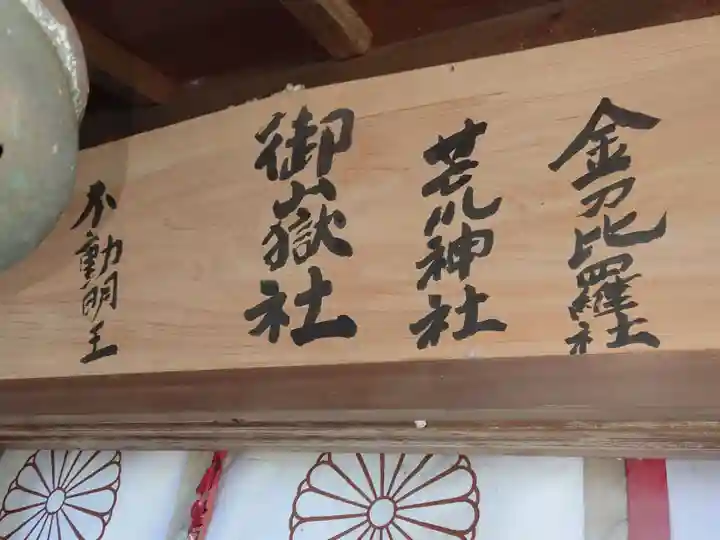 金刀比羅社
荒川神社
御嶽社
不動明王